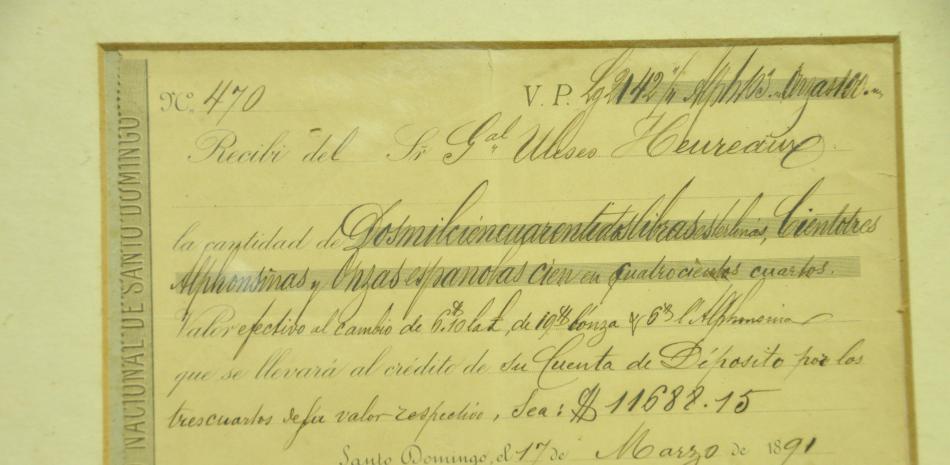 NACIONAL DE SANTO DOMINGO
No. 470
V. P. Lg 2142 Alph 103 Onzas 100
Recibí del Sr Gal Ulises Heureaux
la cantidad de Dosmilciencuarentidos libras esterlinas, Cientotres
Alphonsinas y Onzas espanolas cien en quatrocientos cuartos.
Valor efectivo al cambio de 6.10 la £, de 19 l'onza y 6 l'Alphonsina
que se llevará al crédito de su Cuenta de Déposito por los
trescuartos de su valor respectivo, Sea: $ 11688.15
Santo Domingo, el 17 de Marzo de 1891